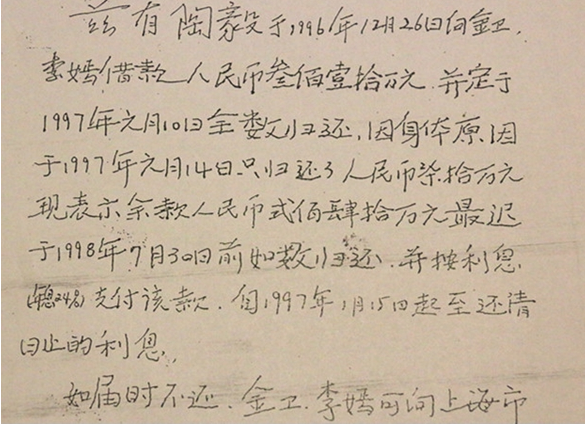 兹有陶毅于1996年12月26日向金卫.
李嫣借款人民币叁佰壹拾万元.并定于
1997年元月10日全数归还,因身体原因
于1997年元月14日只归还了人民币柒拾万元
现表示余款人民币弍佰肆拾万元最迟
于1998年7月30日前如数归还.并按利息
支付该款.自1997年1月15日起至还清
日止的利息.
如届时不还.金卫.李嫣可向上海市